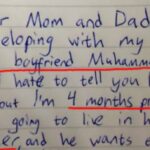 r Mom and Dad
eloping with my
boyfriend Muhamm
hate to tell you
out I'm 4 months p
going to live in h
er, and he wants